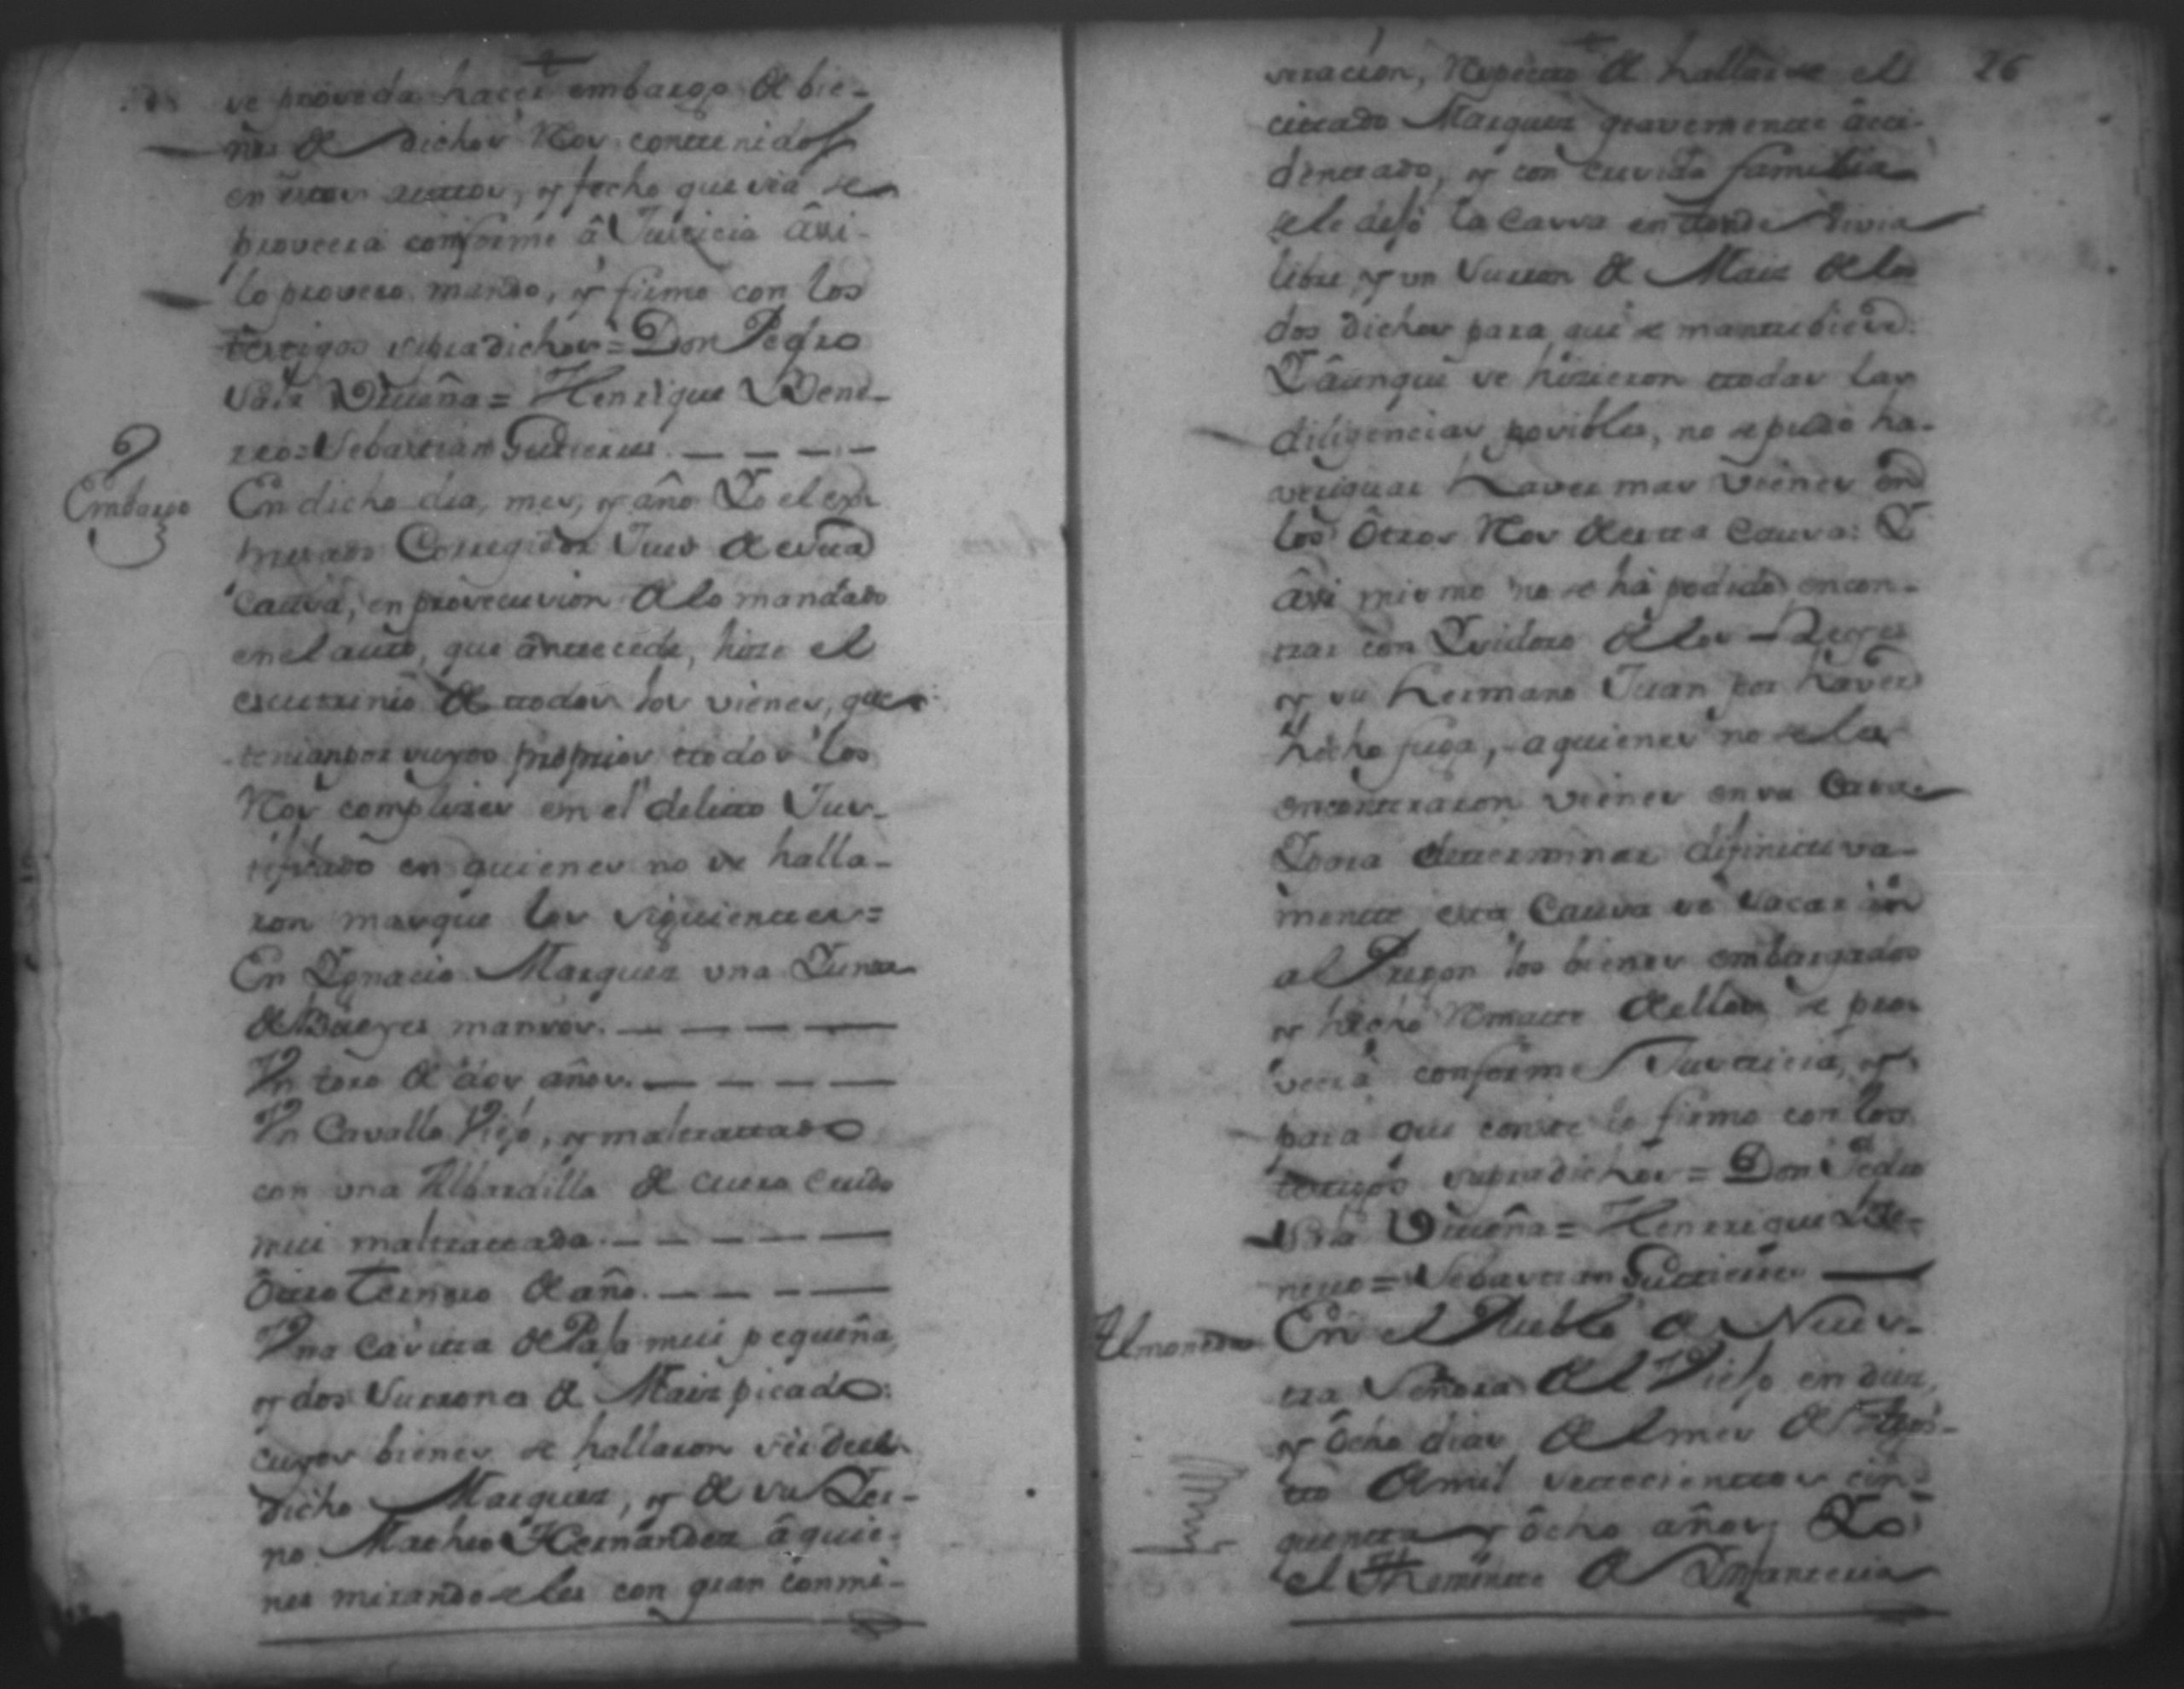 se proceda hacer embargo de bie-
nes de dichos Reos contenidos
en estos auttos, y fecho que sea se
proveera conforme â Justicia âssi
lo proveo mando, y firmo con los
testigos supradichos = Don Pedro
Sanz Vicuña = Henrique Vene-
reo = Sebastian Gutierres
Embargo
En dicho dia, mes, y año Yo el ex-
pressado Corregidor Juez de esta
Causa, en prosecusion de lo mandado
en el auto, que anttecede, hize el
escutrinio de ttodos los vienes, que
tenian por suyos proprios ttodos los
Reos complises en el delitto Jus-
tificado en quienes no se halla-
ron mas que los siguienttes =
En Ygnacio Marquez una Yunta
de Bueyes mansos.
Vn toro de dos años.
Vn Cavallo Viejo, y malttrattado
con una Albardilla de cuero crudo
mui malttrattada.
Ôtro Ternero de año.
Vna Casitta de Paja mui pequeña,
y dos Surrones de Maiz picado:
cuyos bienes se hallaron ser del
dicho Marquez, y de su Yer-
no Matheo Hernandez â quie-
nes mirandoseles con gran conmi-
26
seracion, Respecto de hallarse el
cittado Marquez gravementte âcci-
denttado, y con crecida familia
se le dejó la Cassa en donde vivia
libre, y un Surron de Maiz de los
dos dichos para que se manttubiera:
Y âunque se hizieron ttodas las
diligencias posibles, no se pudo ha-
veriguar haver mas vienes en
los Ôtros Reos de esta Causa: Y
âssi mismo no se há podido encon-
trar con Ysidoro de los Reyes
y su hermano Juan por haver
hecho fuga, a quienes no se les
encontraron vienes en su Casa
Y para determinar definittiva-
mentte esta Causa se sacarán
al Pregon los bienes embargados
y hecho Rematte de ellos, se pro-
veerá conforme Justticia, y
para que conste lo firmo con los
testigos supradichos = Don Pedro
Sanz Vicuña = Henrrique Ve-
nereo = Sebastian Guttierres
Almoneda
En el Pueblo de Nues-
tra Señora del Viejo en diez,
y Ôcho dias del mes de Agos-
tto de mil settecienttos cin-
quentta y ôcho años, Yo
el Theniente de Ynfanteria